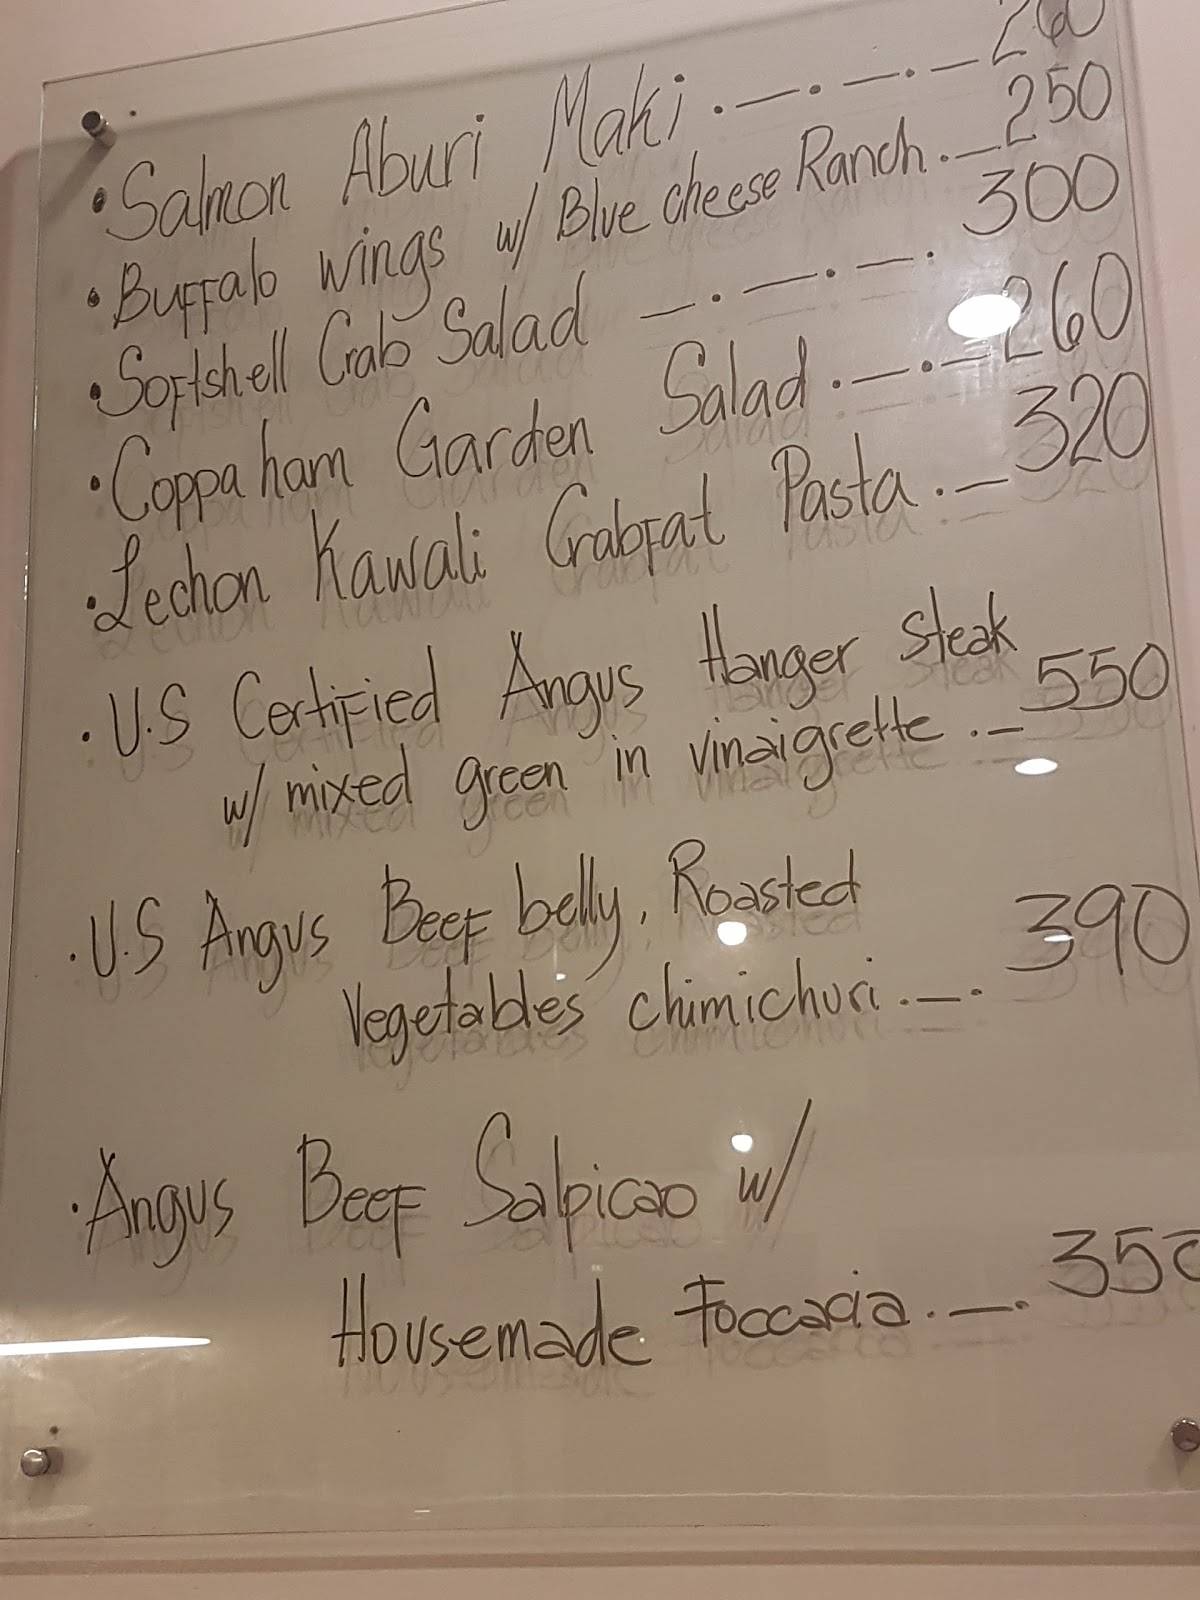 • Salmon Aburi Maki .—.—.— 260
• Buffalo wings w/ Blue cheese Ranch .— 250
• Softshell Crab Salad —.—.—. 300
• Coppa ham Garden Salad .—.— 260
• Lechon Kawali Crabfat Pasta .— 320
• U.S Certified Angus Hanger steak
w/ mixed green in vinaigrette .— 550
• U.S Angus Beef belly, Roasted
Vegetables chimichuri .—. 390
• Angus Beef Salpicao w/
Housemade Foccacia .—. 350